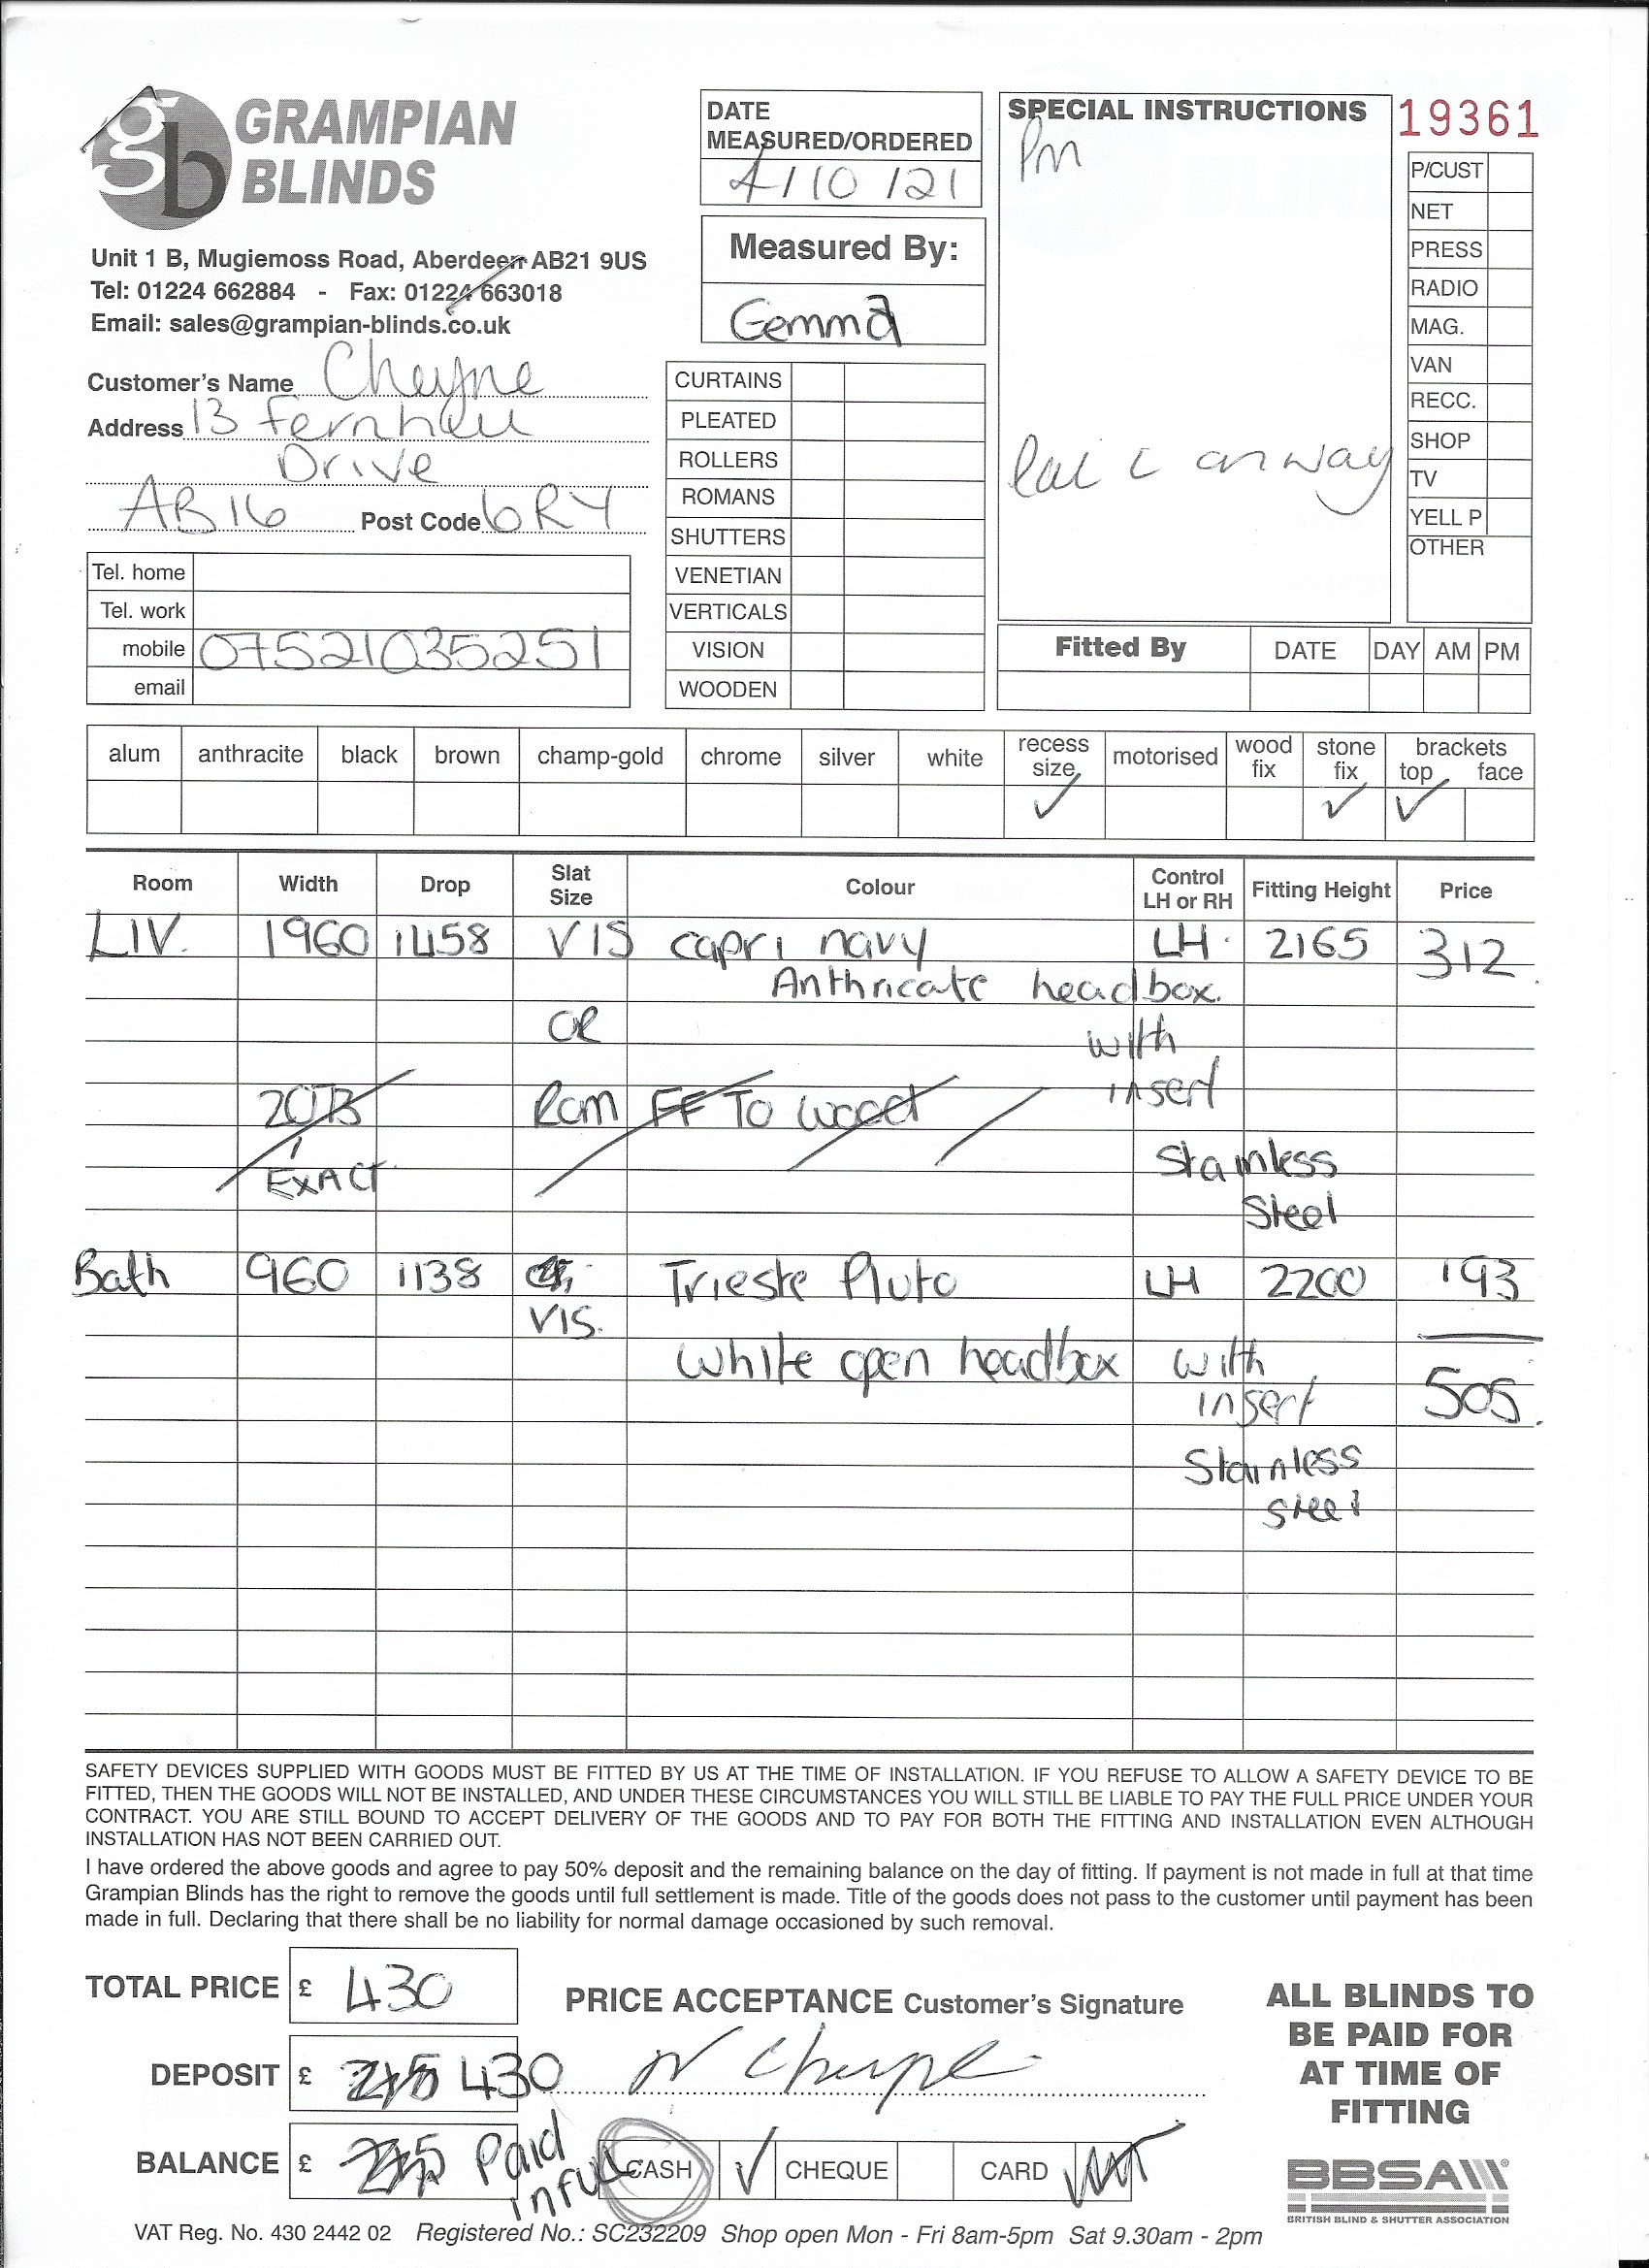 gb GRAMPIAN BLINDS
Unit 1 B, Mugiemoss Road, Aberdeen AB21 9US
Tel: 01224 662884 - Fax: 01224 663018
Email: sales@grampian-blinds.co.uk
Customer's Name Cheyne
Address 13 Fernhill
Drive
AB16 Post Code 6RY
Tel. home
Tel. work
mobile 07521035251
email
DATE
MEASURED/ORDERED
4/10/21
Measured By:
Gemma
CURTAINS
PLEATED
ROLLERS
ROMANS
SHUTTERS
VENETIAN
VERTICALS
VISION
WOODEN
SPECIAL INSTRUCTIONS
Pm
on way
19361
P/CUST
NET
PRESS
RADIO
MAG.
VAN
RECC.
SHOP
TV
YELL P
OTHER
Fitted By DATE DAY AM PM
alum anthracite black brown champ-gold chrome silver white recess size motorised wood fix stone fix brackets top face
✓ ✓ ✓
Room Width Drop Slat Size Colour Control LH or RH Fitting Height Price
LIV. 1960 1458 VIS capri navy LH. 2165 312
Anthricate headbox.
OR with
2013 Rom FF To wood insert
EXACT Stainless
Steel
Bath 960 1138 Trieste Pluto LH 2200 193
VIS.
White open headbox with 505.
insert
Stainless
steel
SAFETY DEVICES SUPPLIED WITH GOODS MUST BE FITTED BY US AT THE TIME OF INSTALLATION. IF YOU REFUSE TO ALLOW A SAFETY DEVICE TO BE
FITTED, THEN THE GOODS WILL NOT BE INSTALLED, AND UNDER THESE CIRCUMSTANCES YOU WILL STILL BE LIABLE TO PAY THE FULL PRICE UNDER YOUR
CONTRACT. YOU ARE STILL BOUND TO ACCEPT DELIVERY OF THE GOODS AND TO PAY FOR BOTH THE FITTING AND INSTALLATION EVEN ALTHOUGH
INSTALLATION HAS NOT BEEN CARRIED OUT.
I have ordered the above goods and agree to pay 50% deposit and the remaining balance on the day of fitting. If payment is not made in full at that time
Grampian Blinds has the right to remove the goods until full settlement is made. Title of the goods does not pass to the customer until payment has been
made in full. Declaring that there shall be no liability for normal damage occasioned by such removal.
TOTAL PRICE £ 430
PRICE ACCEPTANCE Customer's Signature
DEPOSIT £ 215 430
N Cheyne
BALANCE £ 215 Paid
in full
CASH ✓ CHEQUE CARD
ALL BLINDS TO
BE PAID FOR
AT TIME OF
FITTING
BBSA
BRITISH BLIND & SHUTTER ASSOCIATION
VAT Reg. No. 430 2442 02 Registered No.: SC232209 Shop open Mon - Fri 8am-5pm Sat 9.30am - 2pm